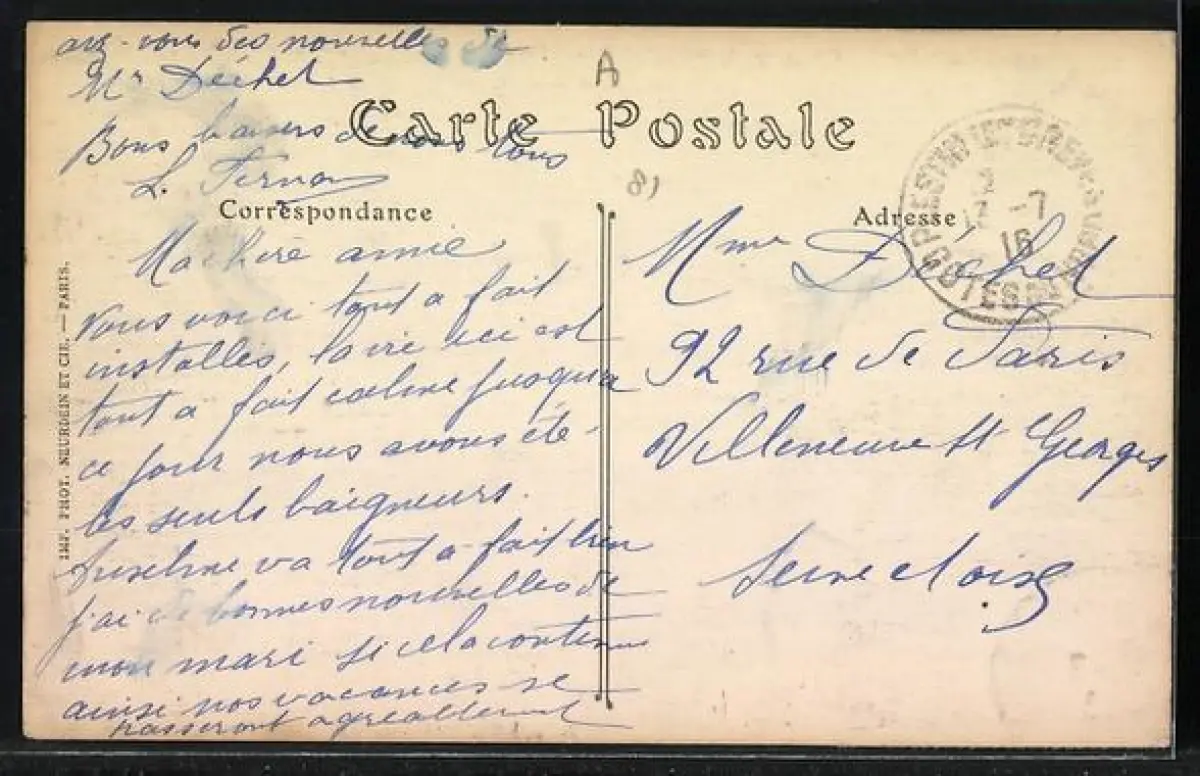 avez-vous des nouvelles de
Mr Déchet
Bons baisers de nous tous
L.
A
Carte Postale
Correspondance
Ma chère amie
Nous voici tout a fait
installés, la vie ici est
tout a fait calme jusqu'a
ce jour nous avons été
les seuls baigneurs.
Anselme va tout a fait bien
j'ai de bonnes nouvelles de
mon mari si cela continue
ainsi nos vacances se
passeront agréablement
IMP. PHOT. NEURDEIN ET CIE. — PARIS.
Adresse
-7
16
Mme Déchet
92 rue de Paris
Villeneuve St Georges
Seine et oise